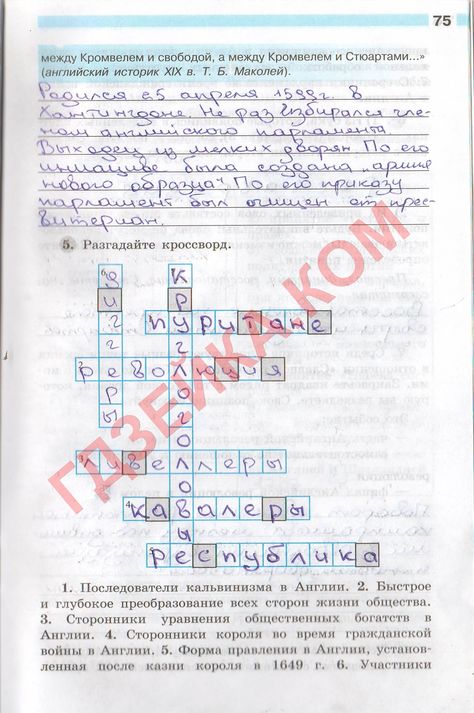 75
между Кромвелем и свободой, а между Кромвелем и Стюартами...»
(английский историк XIX в. Т. Б. Маколей).
Родился 25 апреля 1599г. в
Хантингдоне. Не раз избирался чле-
ном английского парламента
Выходец из мелких дворян. По его
инициативе была создана „армия
нового образца". По его приказу
парламент был очищен от прес-
витериан.
5. Разгадайте кроссворд.
6 диггеры
7 круглоголовые
1 пуритане
2 революция
3 левеллеры
4 кавалеры
5 республика
ГДЗЕЙКА.КОМ
1. Последователи кальвинизма в Англии. 2. Быстрое
и глубокое преобразование всех сторон жизни общества.
3. Сторонники уравнения общественных богатств в
Англии. 4. Сторонники короля во время гражданской
войны в Англии. 5. Форма правления в Англии, установ-
ленная после казни короля в 1649 г. 6. Участники